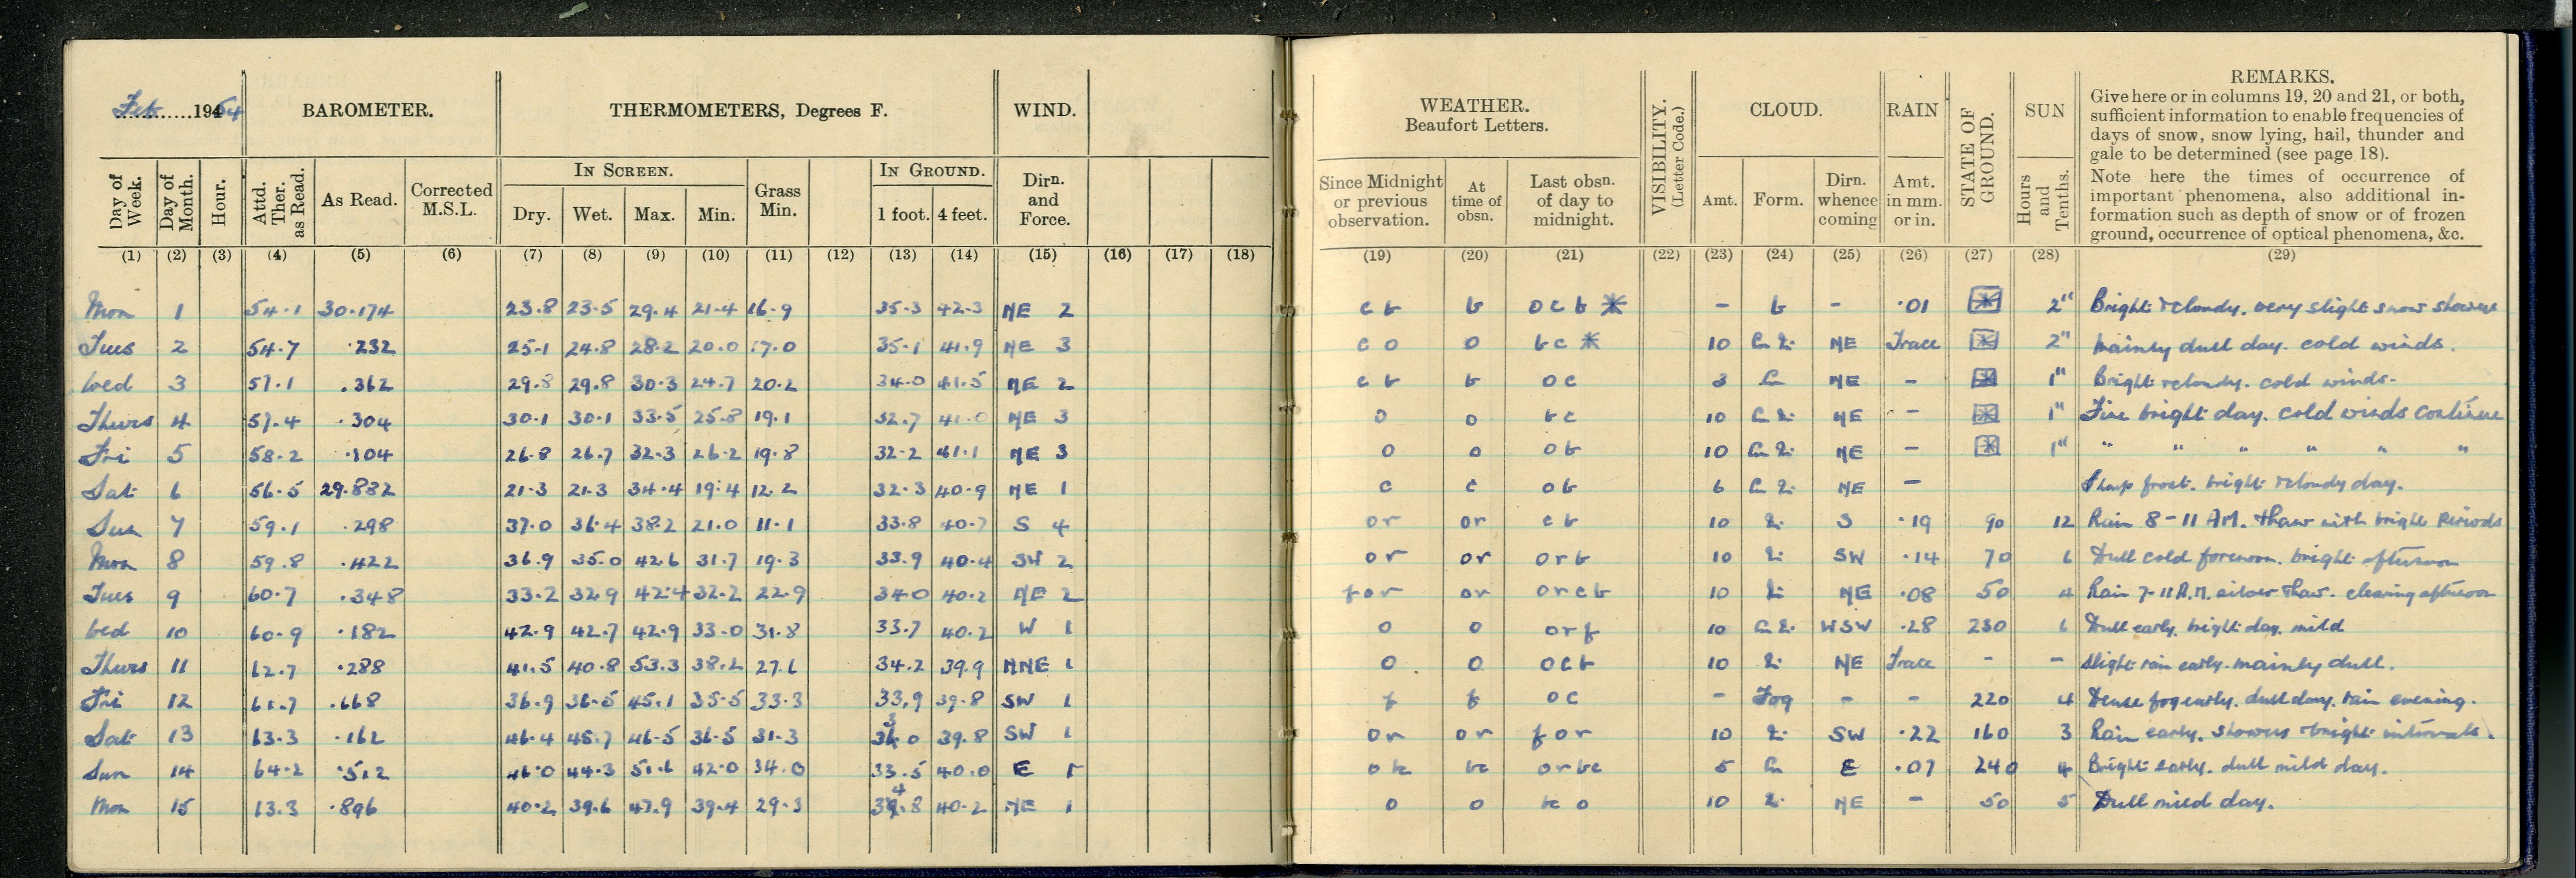 Feb 1954
BAROMETER.
THERMOMETERS, Degrees F.
WIND.
Day of Week.
Day of Month.
Hour.
Attd. Ther. as Read.
As Read.
Corrected M.S.L.
IN SCREEN.
Dry. Wet. Max. Min.
Grass Min.
IN GROUND.
1 foot. 4 feet.
Dirn. and Force.
(1) (2) (3) (4) (5) (6) (7) (8) (9) (10) (11) (12) (13) (14) (15) (16) (17) (18)
Mon 1 54.1 30.174 23.8 23.5 29.4 21.4 16.9 35.3 42.3 NE 2
Tues 2 54.7 .232 25.1 24.8 28.2 20.0 17.0 35.1 41.9 NE 3
Wed 3 57.1 .362 29.8 29.8 30.3 24.7 20.2 34.0 41.5 NE 2
Thurs 4 57.4 .304 30.1 30.1 33.5 25.8 19.1 32.7 41.0 NE 3
Fri 5 58.2 .104 26.8 26.7 32.3 26.2 19.8 32.2 41.1 NE 3
Sat 6 56.5 29.882 21.3 21.3 34.4 19.4 12.2 32.3 40.9 NE 1
Sun 7 59.1 .298 37.0 36.4 38.2 21.0 11.1 33.8 40.7 S 4
Mon 8 59.8 .422 36.9 35.0 42.6 31.7 19.3 33.9 40.4 SW 2
Tues 9 60.7 .348 33.2 32.9 42.4 32.2 22.9 34.0 40.2 NE 2
Wed 10 60.9 .182 42.9 42.7 42.9 33.0 31.8 33.7 40.2 W 1
Thurs 11 62.7 .288 41.5 40.8 53.3 38.2 27.6 34.2 39.9 NNE 1
Fri 12 61.7 .668 36.9 36.5 45.1 35.5 33.3 33.9 39.8 SW 1
Sat 13 63.3 .162 46.4 45.7 46.5 36.5 31.3 33.0 39.8 SW 1
Sun 14 64.2 .512 46.0 44.3 51.6 42.0 34.0 33.5 40.0 E 1
Mon 15 63.3 .896 40.2 39.6 47.9 39.4 29.3 34.8 40.2 NE 1
WEATHER.
Beaufort Letters.
Since Midnight or previous observation.
At time of obsn.
Last obsn. of day to midnight.
VISIBILITY. (Letter Code.)
CLOUD.
Amt. Form. Dirn. whence coming
RAIN
Amt. in mm. or in.
STATE OF GROUND.
SUN
Hours and Tenths.
REMARKS.
Give here or in columns 19, 20 and 21, or both,
sufficient information to enable frequencies of
days of snow, snow lying, hail, thunder and
gale to be determined (see page 18).
Note here the times of occurrence of
important phenomena, also additional in-
formation such as depth of snow or of frozen
ground, occurrence of optical phenomena, &c.
(19) (20) (21) (22) (23) (24) (25) (26) (27) (28) (29)
c b b o c b * - b - .01 * 2" Bright & cloudy. very slight snow showers
c o o b c * 10 NE Trace * 2" mainly dull day. cold winds.
c b b o c 3 Cu NE - * 1" Bright & cloudy. cold winds.
o o b c 10 NE - * 1" Fine bright day. cold winds continue
o o o b 10 NE - * 1" " " " " " "
c c o b 6 NE - Sharp frost. bright & cloudy day.
or or c b 10 S .19 90 12 Rain 8-11 AM. thaw with bright periods
or or o r b 10 SW .14 70 6 Dull cold forenoon. bright afternoon
f o r or o r c b 10 NE .08 50 4 Rain 7-11 A.M. silver thaw. clearing afternoon
o o o r f 10 WSW .28 230 6 Dull early. bright day. mild
o o o c b 10 NE Trace - - slight rain early. mainly dull.
f f o c - Fog - - 220 4 Dense fog early. dull day. rain evening.
or or f o r 10 SW .22 160 3 Rain early. showers & bright intervals.
bc o r b c 5 Cu E .07 240 4 Bright early. dull mild day.
o o bc o 10 NE - 50 5 Dull mild day.